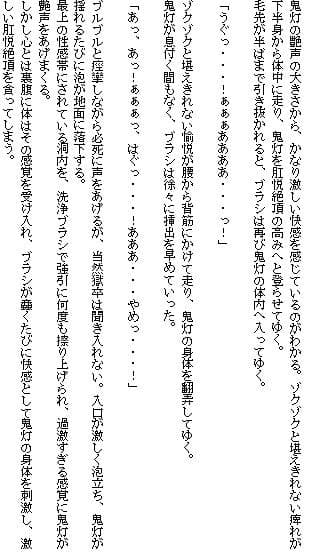 鬼灯の艶声の大きさから、かなり激しい快感を感じているのがわかる。ゾクゾクと堪えきれない痺れが
下半身から体中に走り、鬼灯を肛悦絶頂の高みへと登らせてゆく。
毛先が半ばまで引き抜かれると、ブラシは再び鬼灯の体内へ入ってゆく。
「うぐっ・・・！ぁぁぁああああ・・・っ！」
ゾクゾクと堪えきれない愉悦が腰から背筋にかけて走り、鬼灯の身体を翻弄してゆく。
鬼灯が息付く間もなく、ブラシは徐々に挿出を早めていった。
「あっ、あっ！ぁぁぁっ、はぐっ・・・！あああ・・・やめっ・・・！」
ブルブルと痙攣しながら必死に声をあげるが、当然獄卒は聞き入れない。入口が激しく泡立ち、鬼灯が
揺れるたびに泡が地面に落下する。
最上の性感帯にされている洞内を、洗浄ブラシで強引に何度も擦り上げられ、過激すぎる感覚に鬼灯が
艶声をあげまくる。
しかし心とは裏腹に体はその感覚を受け入れ、ブラシが蠢くたびに快感として鬼灯の身体を刺激し、激
しい肛悦絶頂を貪ってしまう。